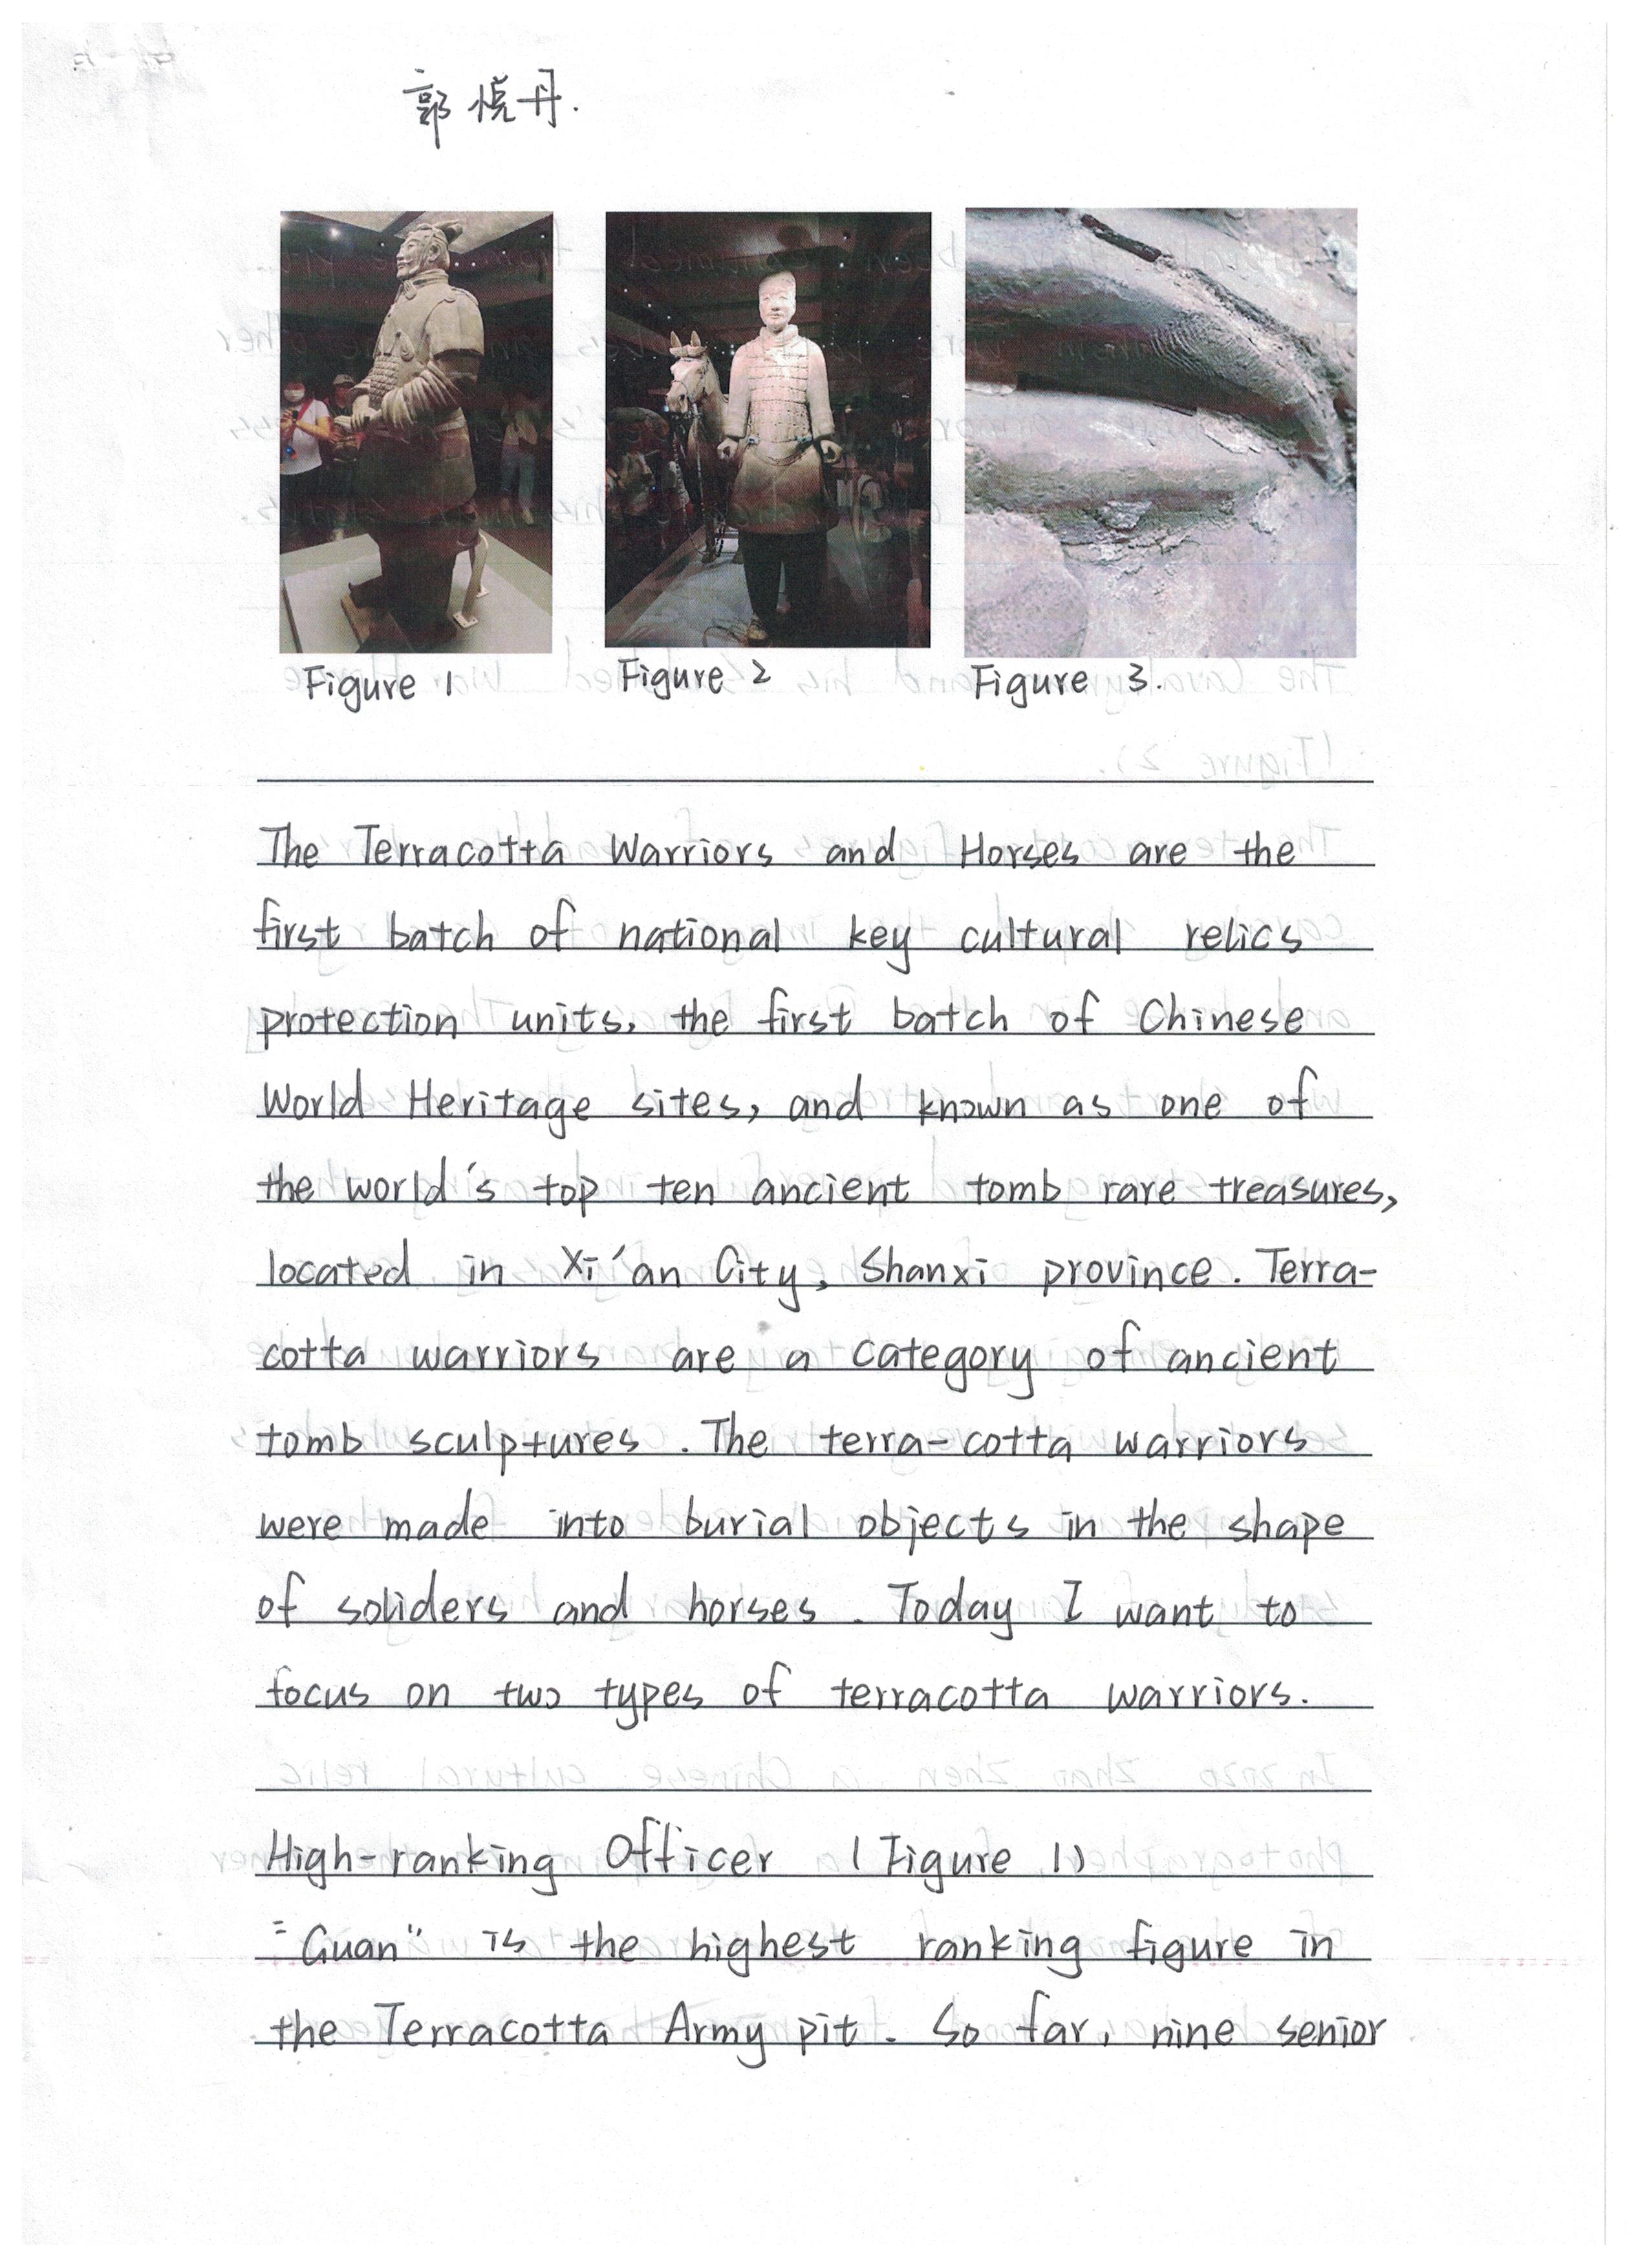 郭悦丹.
Figure 1
Figure 2
Figure 3.
The Terracotta Warriors and Horses are the
first batch of national key cultural relics
protection units, the first batch of Chinese
World Heritage sites, and known as one of
the world's top ten ancient tomb rare treasures,
located in Xi'an City, Shanxi province. Terra-
cotta warriors are a category of ancient
tomb sculptures. The terra-cotta warriors
were made into burial objects in the shape
of soliders and horses. Today I want to
focus on two types of terracotta warriors.
High-ranking Officer (Figure 1)
"Guan" is the highest ranking figure in
the Terracotta Army pit. So far, nine senior